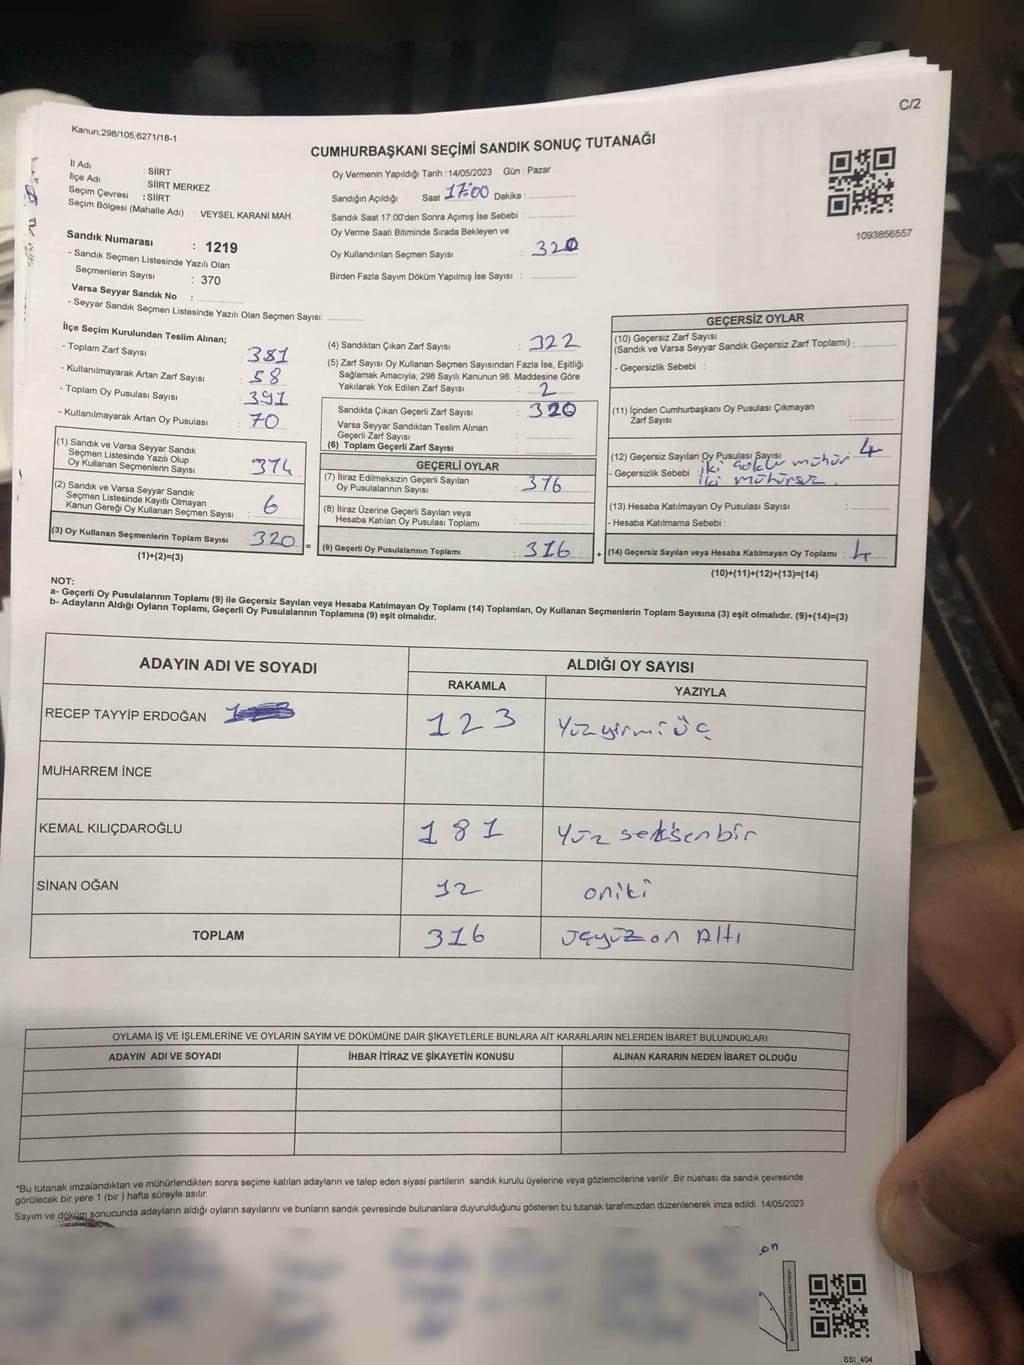 C/2
Kanun;298/105,6271/18-1
CUMHURBAŞKANI SEÇİMİ SANDIK SONUÇ TUTANAĞI
İl Adı : SİİRT
İlçe Adı : SİİRT MERKEZ
Seçim Çevresi : SİİRT
Seçim Bölgesi (Mahalle Adı) : VEYSEL KARANİ MAH.
Sandık Numarası : 1219
- Sandık Seçmen Listesinde Yazılı Olan
Seçmenlerin Sayısı : 370
Varsa Seyyar Sandık No :
- Seyyar Sandık Seçmen Listesinde Yazılı Olan Seçmen Sayısı:
Oy Vermenin Yapıldığı Tarih :14/05/2023 Gün : Pazar
Sandığın Açıldığı Saat 17:00 Dakika :
Sandık Saat 17:00'den Sonra Açımış İse Sebebi :
Oy Verme Saati Bitiminde Sırada Bekleyen ve
Oy Kullandırılan Seçmen Sayısı : 320
Birden Fazla Sayım Döküm Yapılmış İse Sayısı :
1093856557
İlçe Seçim Kurulundan Teslim Alınan;
- Toplam Zarf Sayısı 381
- Kullanılmayarak Artan Zarf Sayısı : 58
- Toplam Oy Pusulası Sayısı : 391
- Kullanılmayarak Artan Oy Pusulası : 70
(1) Sandık ve Varsa Seyyar Sandık
Seçmen Listesinde Yazılı Olup
Oy Kullanan Seçmenlerin Sayısı : 314
(2) Sandık ve Varsa Seyyar Sandık
Seçmen Listesinde Kayıtlı Olmayan
Kanun Gereği Oy Kullanan Seçmen Sayısı : 6
(3) Oy Kullanan Seçmenlerin Toplam Sayısı : 320
(1)+(2)=(3)
(4) Sandıktan Çıkan Zarf Sayısı : 322
(5) Zarf Sayısı Oy Kullanan Seçmen Sayısından Fazla İse, Eşitliği
Sağlamak Amacıyla; 298 Sayılı Kanunun 98. Maddesine Göre
Yakılarak Yok Edilen Zarf Sayısı : 2
Sandıkta Çıkan Geçerli Zarf Sayısı : 320
Varsa Seyyar Sandıktan Teslim Alınan
Geçerli Zarf Sayısı :
(6) Toplam Geçerli Zarf Sayısı :
GEÇERLİ OYLAR
(7) İtiraz Edilmeksizin Geçerli Sayılan
Oy Pusulalarının Sayısı : 316
(8) İtiraz Üzerine Geçerli Sayılan veya
Hesaba Katılan Oy Pusulası Toplamı :
= (9) Geçerli Oy Pusulalarının Toplamı : 316 +
GEÇERSİZ OYLAR
(10) Geçersiz Zarf Sayısı
(Sandık ve Varsa Seyyar Sandık Geçersiz Zarf Toplamı) :
- Geçersizlik Sebebi :
(11) İçinden Cumhurbaşkanı Oy Pusulası Çıkmayan
Zarf Sayısı :
(12) Geçersiz Sayılan Oy Pusulası Sayısı : 4
- Geçersizlik Sebebi : iki mühürsüz
(13) Hesaba Katılmayan Oy Pusulası Sayısı :
- Hesaba Katılmama Sebebi :
(14) Geçersiz Sayılan veya Hesaba Katılmayan Oy Toplamı : 4
(10)+(11)+(12)+(13)=(14)
NOT:
a- Geçerli Oy Pusulalarının Toplamı (9) ile Geçersiz Sayılan veya Hesaba Katılmayan Oy Toplamı (14) Toplamları, Oy Kullanan Seçmenlerin Toplam Sayısına (3) eşit olmalıdır. (9)+(14)=(3)
b- Adayların Aldığı Oyların Toplamı, Geçerli Oy Pusulalarının Toplamına (9) eşit olmalıdır.
ADAYIN ADI VE SOYADI
ALDIĞI OY SAYISI
RAKAMLA YAZIYLA
RECEP TAYYİP ERDOĞAN 123 Yüzyirmi üç
MUHARREM İNCE
KEMAL KILIÇDAROĞLU 181 Yüz seksenbir
SİNAN OĞAN 12 oniki
TOPLAM 316 üçyüz on Altı
OYLAMA İŞ VE İŞLEMLERİNE VE OYLARIN SAYIM VE DÖKÜMÜNE DAİR ŞİKAYETLERLE BUNLARA AİT KARARLARIN NELERDEN İBARET BULUNDUKLARI
ADAYIN ADI VE SOYADI İHBAR İTİRAZ VE ŞİKAYETİN KONUSU ALINAN KARARIN NEDEN İBARET OLDUĞU
*Bu tutanak imzalandıktan ve mühürlendikten sonra seçime katılan adayların ve talep eden siyasi partilerin sandık kurulu üyelerine veya gözlemcilerine verilir. Bir nüshası da sandık çevresinde
görülecek bir yere 1 (bir ) hafta süreyle asılır.
Sayım ve döküm sonucunda adayların aldığı oyların sayılarını ve bunların sandık çevresinde bulunanlara duyurulduğunu gösteren bu tutanak tarafımızdan düzenlenerek imza edildi. 14/05/2023
on
SSİ_404